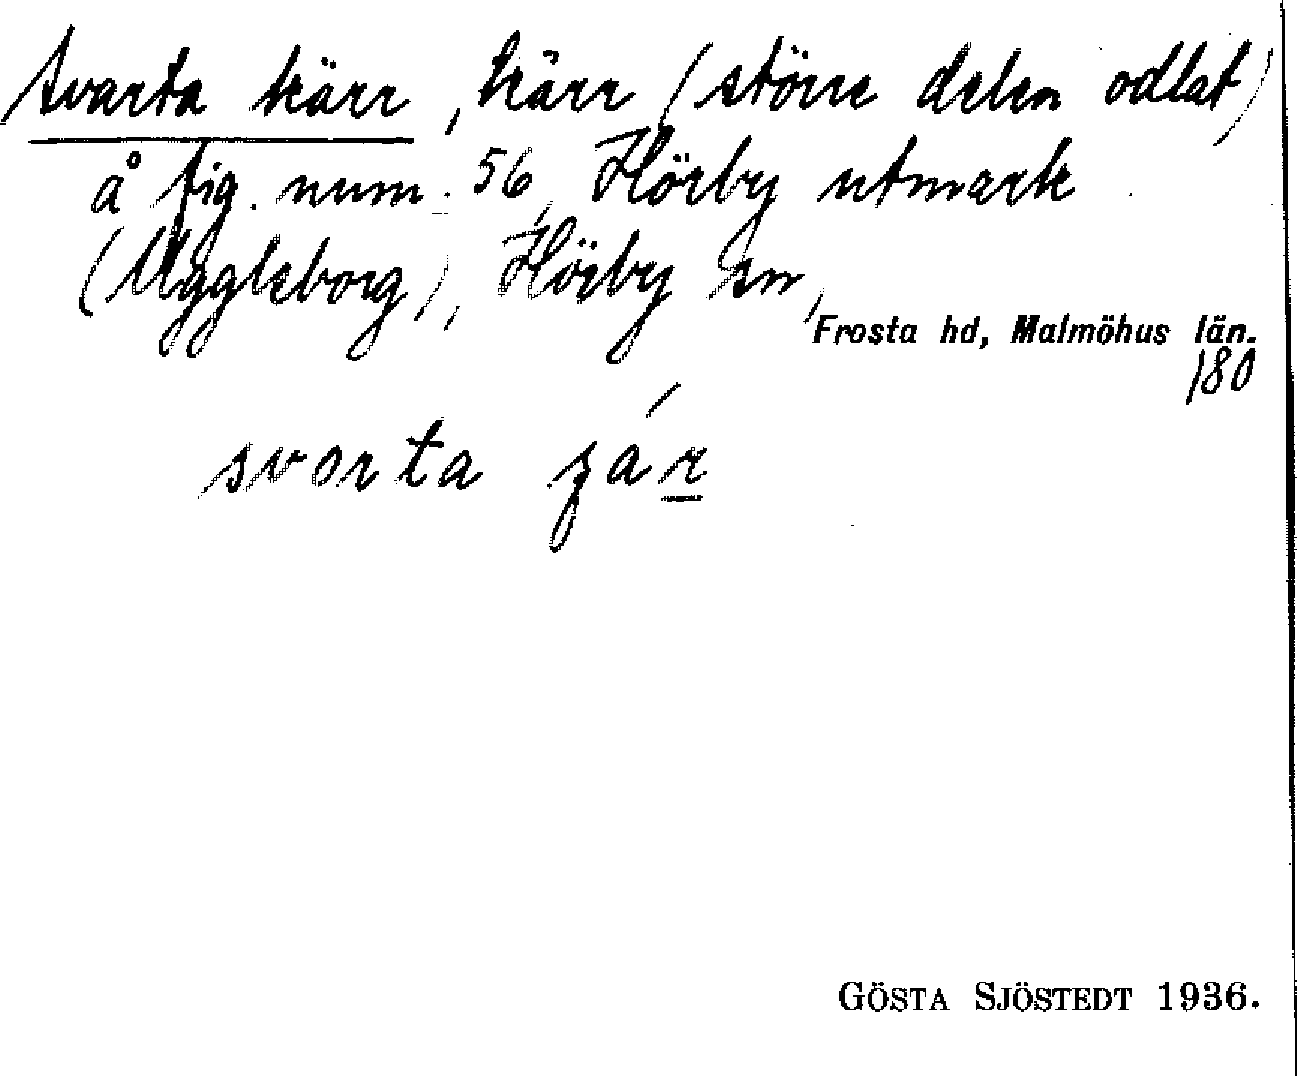 Svarta kärr, kärr (större delen odlat)
å fig. num. 56, Hörby utmark
(Uggleborg), Hörby sn,
Frosta hd, Malmöhus län.
180
svorta
GÖSTA SJÖSTEDT 1936.